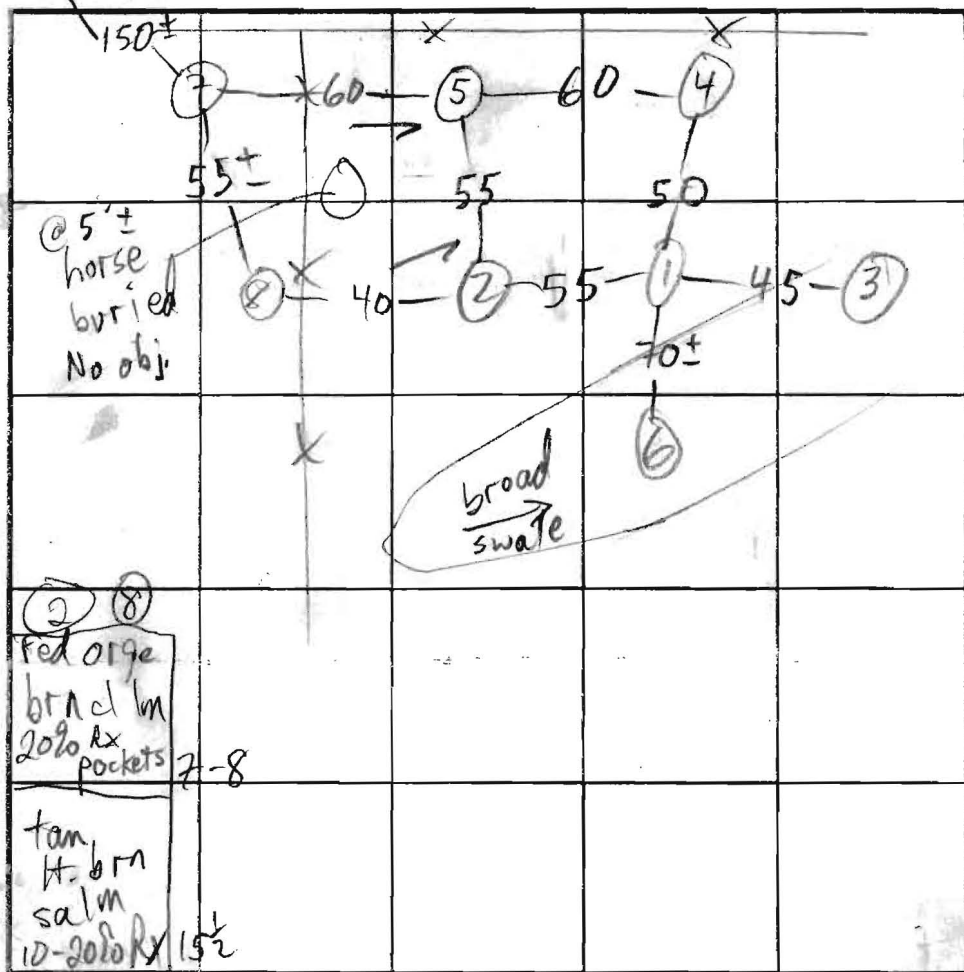 150±
7 60 5 60 4
55± 55 50
@ 5'±
horse
buried
No obj.
8 40 2 55 1 45 3
70±
6
broad
swale
2 8
red orge
brn cl lm
20% Rx
pockets 7-8
tan
lt. brn
sa lm
10-20% Rx 15½